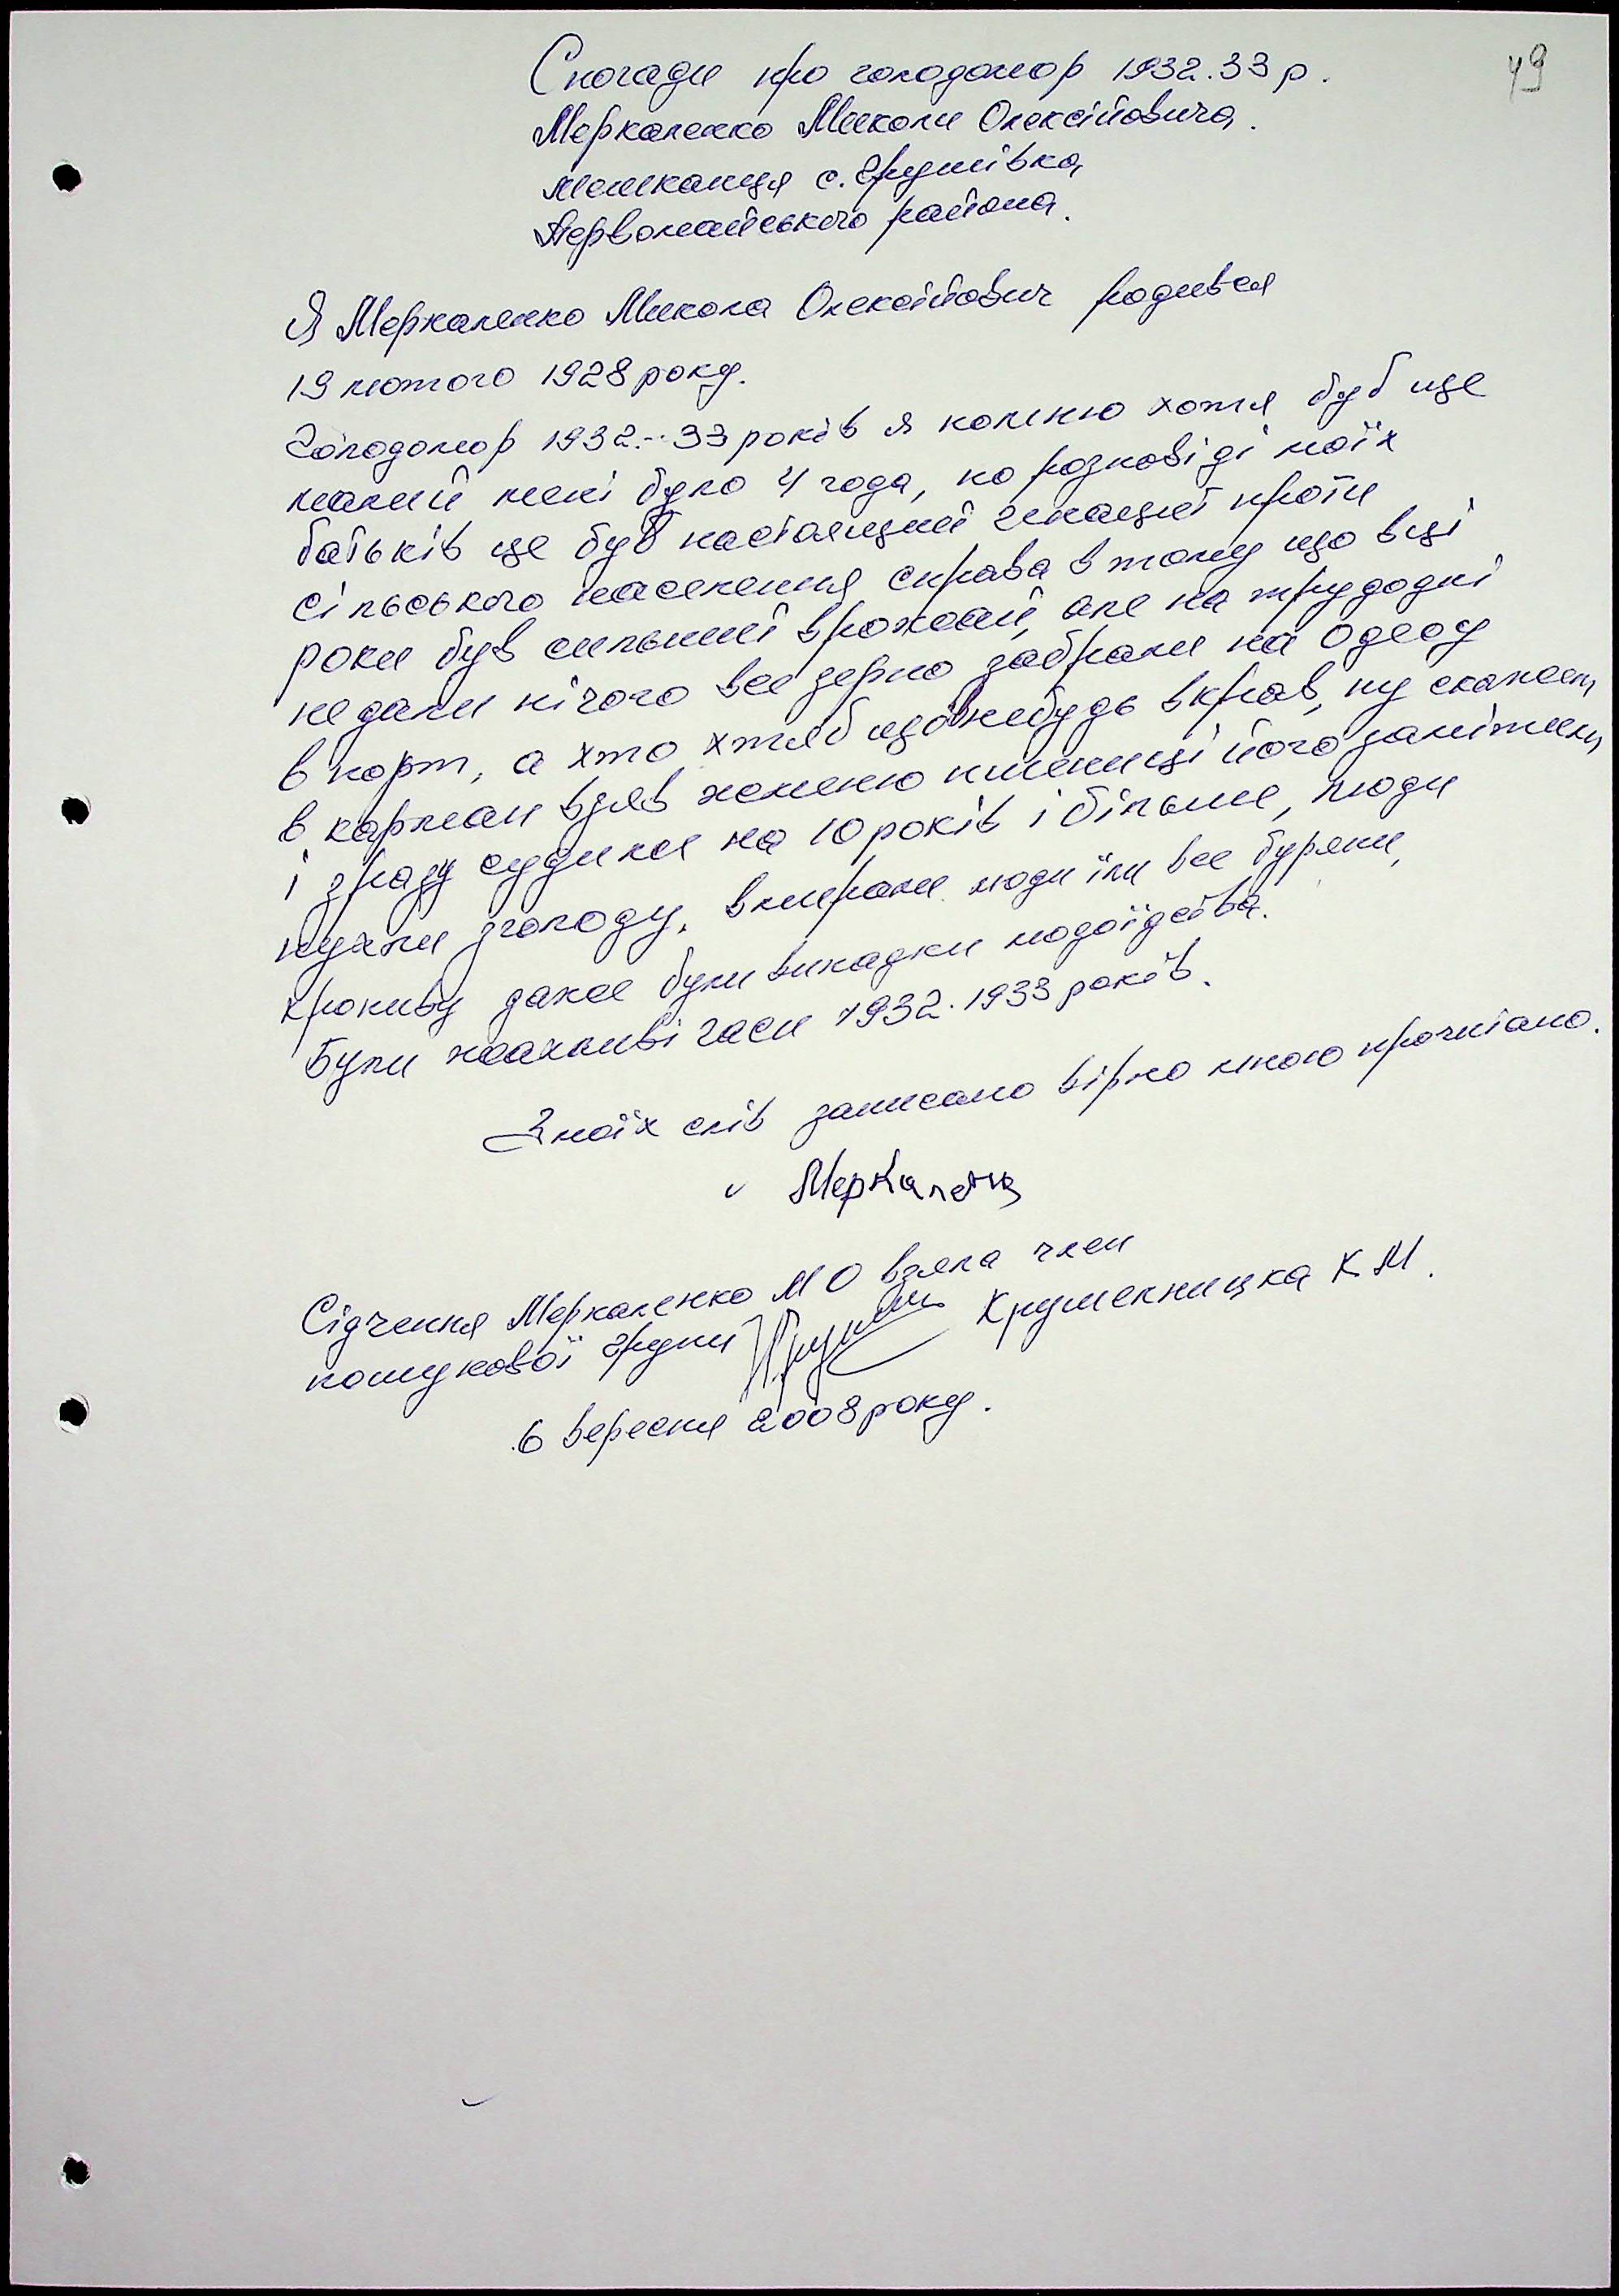 49
Спогади про голодомор 1932.33 р.
Меркаленко Миколи Олексійовича.
мешканця с. Грушівка
Первомайського района.
Я Меркаленко Микола Олексійович родився
19 лютого 1928 року.
Голодомор 1932-33 років я помню хотя був ще
малий мені було 4 года, по розповіді моїх
батьків це був настоящий геноцит проти
сільського населення справа в тому що в ці
роки був сильний врожай, але на трудодні
не дали нічого все зерно забрали на Одесу
в порт, а хто хтяб щонебудь вкрав, ну скажем,
в карман взяв жменю пшениці його замітили
і зразу судили на 10 років і більше, люди
пухли зголоду, вмирали люди їли все буряни,
кропиву даже були випадки людоїдства.
Були жахливі часи 1932.1933 років.
З моїх слів записано вірно мною прочитано.
Меркаленко
Сідчення Меркаленко М О взяла член
пошукової групи Крушельницка К М.
6 вересня 2008 року.